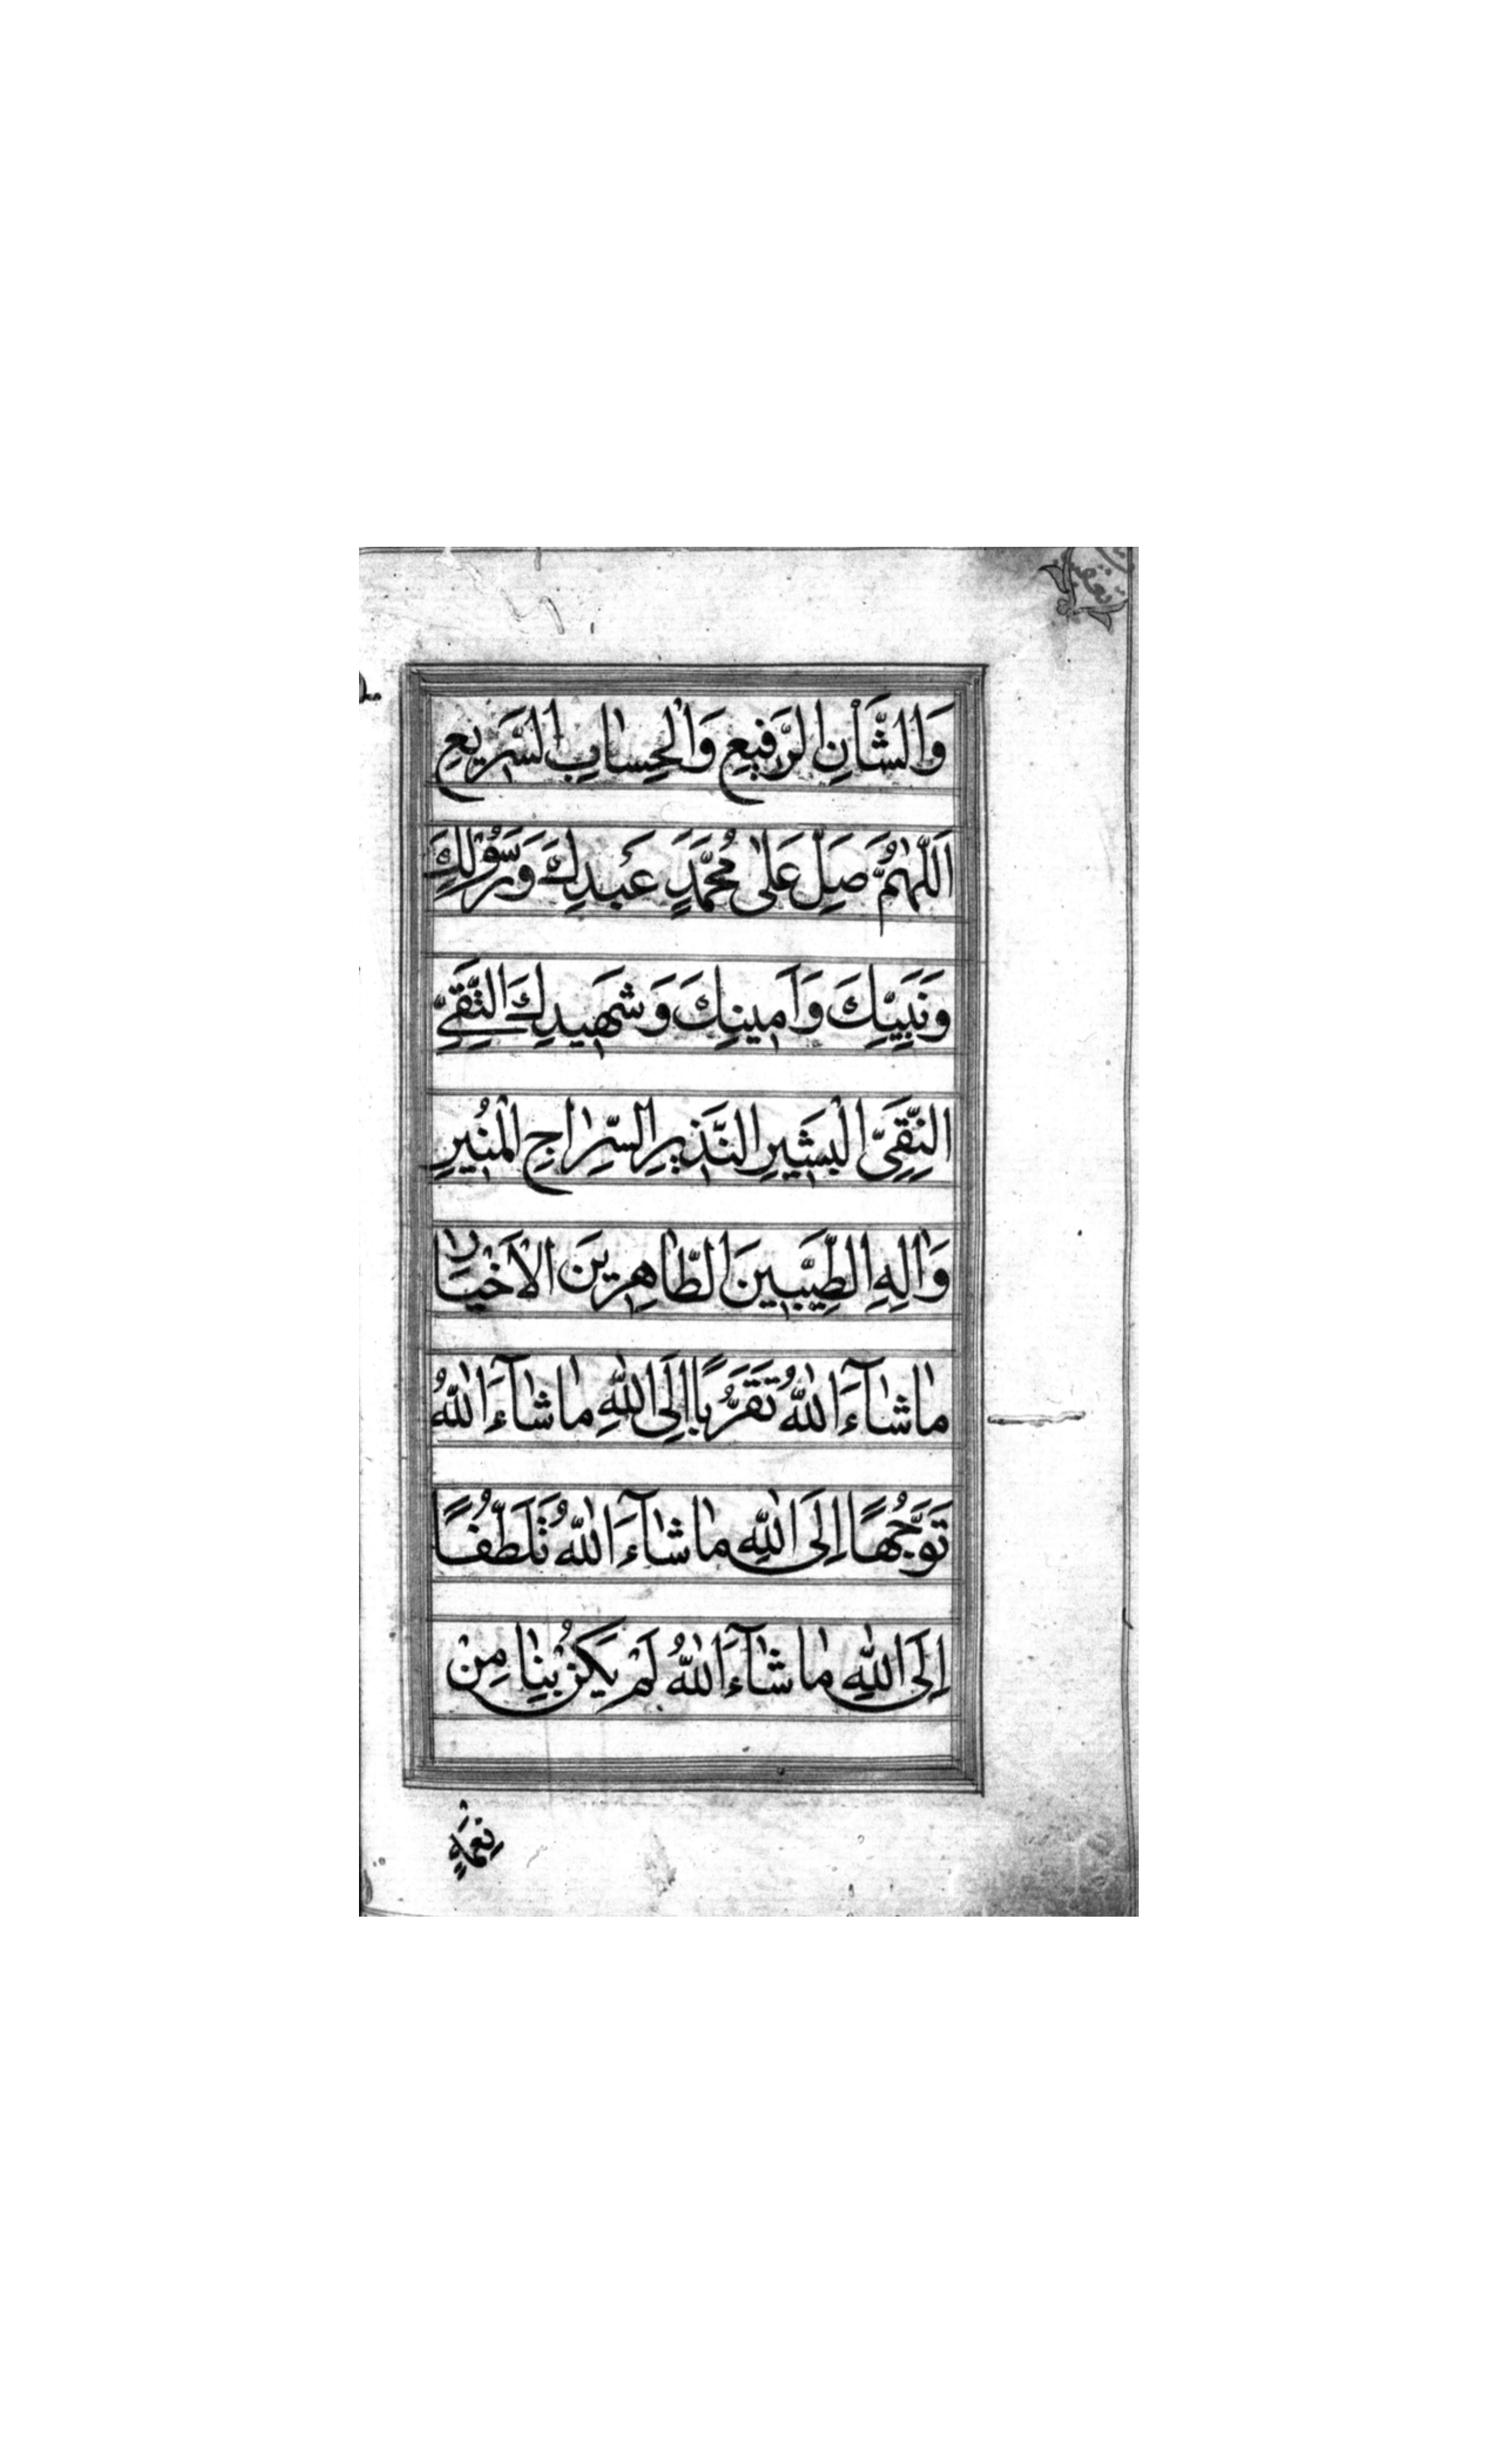 وَالشَّأْنِ الرَّفِيعِ وَالْحِسَابِ السَّرِيعِ
اَللّٰهُمَّ صَلِّ عَلٰى مُحَمَّدٍ عَبْدِكَ وَرَسُوْلِكَ
وَنَبِيِّكَ وَاَمِينِكَ وَشَهِيدِكَ التَّقِيِّ
النَّقِيِّ الْبَشِيرِ النَّذِيرِ السِّرَاجِ الْمُنِيرِ
وَاٰلِهِ الطَّيِّبِينَ الطَّاهِرِينَ الْاَخْيَارِ
مَا شَآءَ اللّٰهُ تَقَرُّبًا اِلَى اللّٰهِ مَا شَآءَ اللّٰهُ
تَوَجُّهًا اِلَى اللّٰهِ مَا شَآءَ اللّٰهُ تَلَطُّفًا
اِلَى اللّٰهِ مَا شَآءَ اللّٰهُ لَمْ يَكُنْ بِنَا مِنْ
نِعْمَةٍ